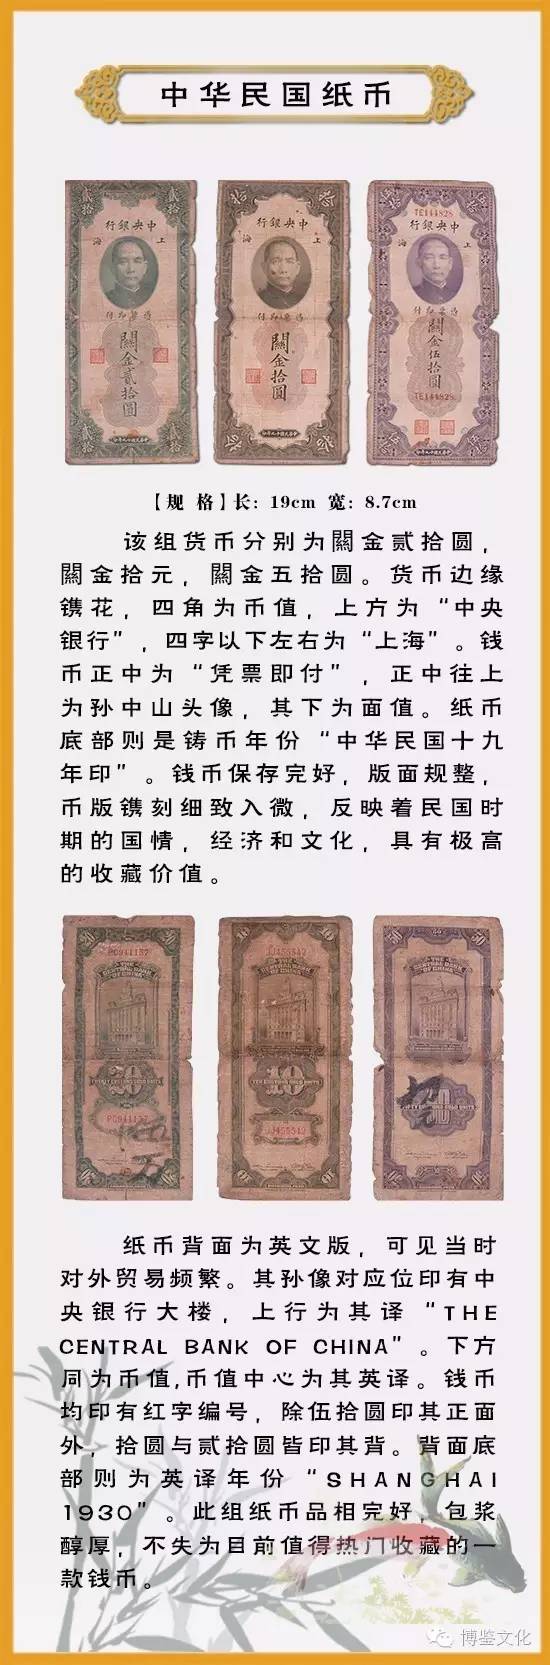 中华民国纸币
贰拾
贰拾
拾
拾
行银央中
海 上
付即票凭
關金贰拾圓
行银央中
海 上
付即票凭
關金拾圓
TE144828
行银央中
海 上
付即票凭
關金伍拾圓
TE144828
【规 格】长：19cm 宽：8.7cm
该组货币分别为關金贰拾圆，
關金拾元，關金五拾圆。货币边缘
镌花，四角为币值，上方为“中央
银行”，四字以下左右为“上海”。钱
币正中为“凭票即付”，正中往上
为孙中山头像，其下为面值。纸币
底部则是铸币年份“中华民国十九
年印”。钱币保存完好，版面规整，
币版镌刻细致入微，反映着民国时
期的国情，经济和文化，具有极高
的收藏价值。
20
PC941157
THE
CENTRAL BANK
OF CHINA
20
TWENTY CUSTOMS GOLD UNITS
PC941157
10
JJ455542
THE
CENTRAL BANK
OF CHINA
10
TEN CUSTOMS GOLD UNITS
JJ455542
50
THE
CENTRAL BANK
OF CHINA
50
FIFTY CUSTOMS GOLD UNITS
纸币背面为英文版，可见当时
对外贸易频繁。其孙像对应位印有中
央银行大楼，上行为其译“THE
CENTRAL BANK OF CHINA”。下方
同为币值,币值中心为其英译。钱币
均印有红字编号，除伍拾圆印其正面
外，拾圆与贰拾圆皆印其背。背面底
部则为英译年份“SHANGHAI
1930”。此组纸币品相完好，包浆
醇厚，不失为目前值得热门收藏的一
款钱币。
博鉴文化